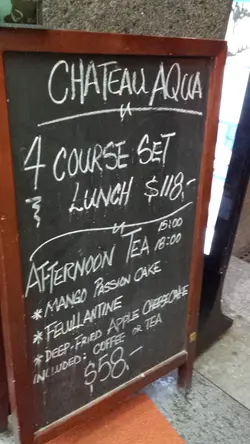 CHATEAU AQUA
4 COURSE SET
LUNCH $118,-
15:00
AFTERNOON TEA 18:00
* MANGO PASSION CAKE
* FEUILLANTINE
* DEEP-FRIED APPLE CHEESECAKE
INCLUDED: COFFEE OR TEA
$58.-